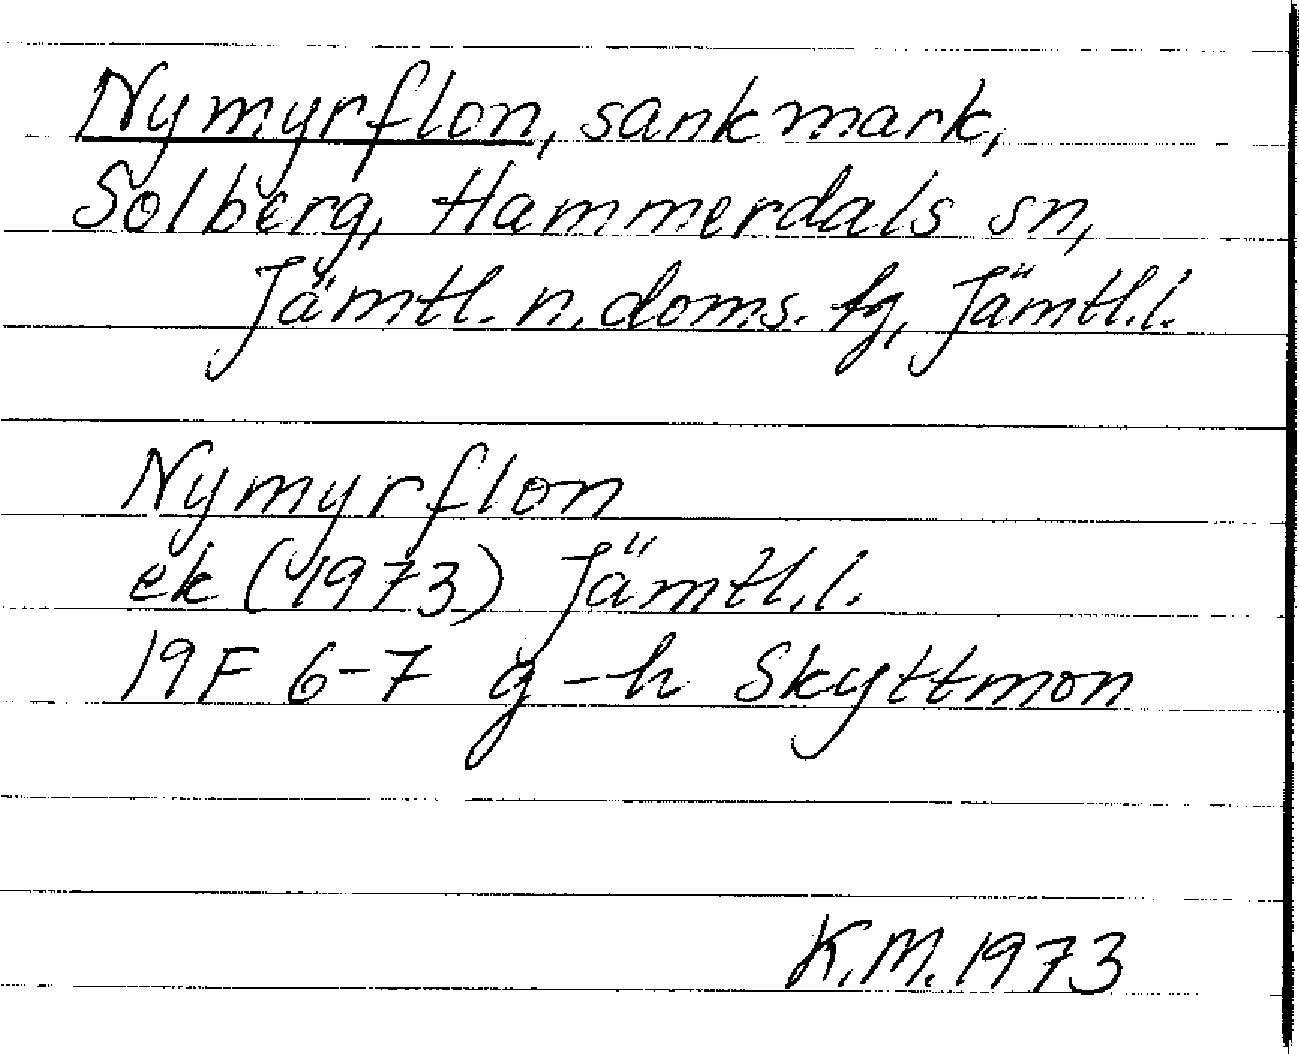 Nymyrflon, sankmark,
Solberg, Hammerdals sn,
Jämtl. n. doms. tg, Jämtl.l.
Nymyrflon
ek (1973) Jämtl.l.
19F 6-7 g-h Skyttmon
K.M. 1973